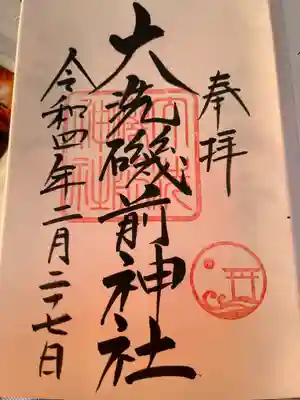 奉拝
大洗磯前神社
令和四年二月二十七日